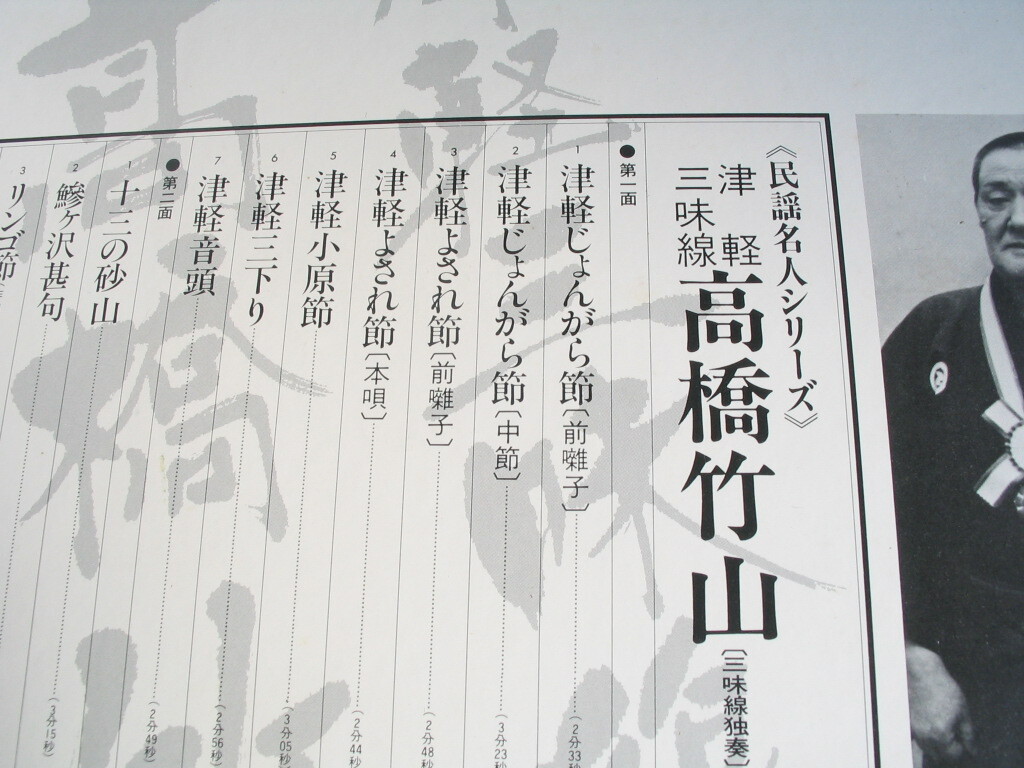 《民謡名人シリーズ》
津軽
三味線
高橋竹山〔三味線独奏〕
●第一面
1 津軽じょんがら節〔前囃子〕(2分33秒
2 津軽じょんがら節〔中節〕(3分23秒
3 津軽よされ節〔前囃子〕(2分48秒
4 津軽よされ節〔本唄〕(2分44秒
5 津軽小原節(3分05秒
6 津軽三下り(2分56秒)
7 津軽音頭(2分49秒)
●第二面
1 十三の砂山(3分15秒)
2 鰺ヶ沢甚句
3 リンゴ節
軽三味
高橋